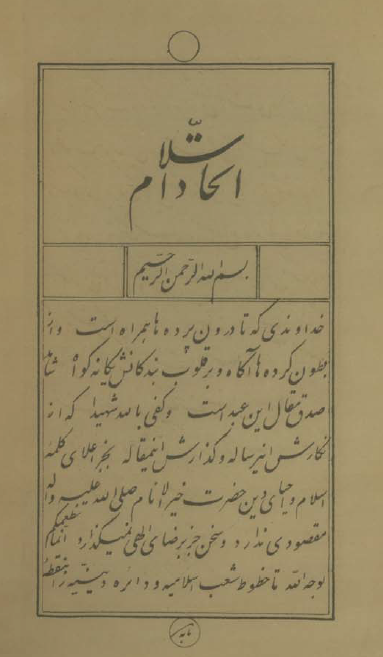 اتحاد اسلام
بسم الله الرحمن الرحیم
خداوندی که تا درون پرده ها همراه است و از
بطون کرده ها آگاه و بر قلوب بندگانش یگانه گواه شاهد
صدق مقال این عبد است و کفی بالله شهیدا که از
نگارش این رساله و گذارش این مقاله بجز اعلای کلمه
اسلام و احیای دین حضرت خیر الانام صلی الله علیه و اله
مقصودی ندارد و سخن جز برضای الهی نمیگذارد انما نطعمکم
لوجه الله تا خطوط شعب اسلامیه و دائره دینیه را بنقطه